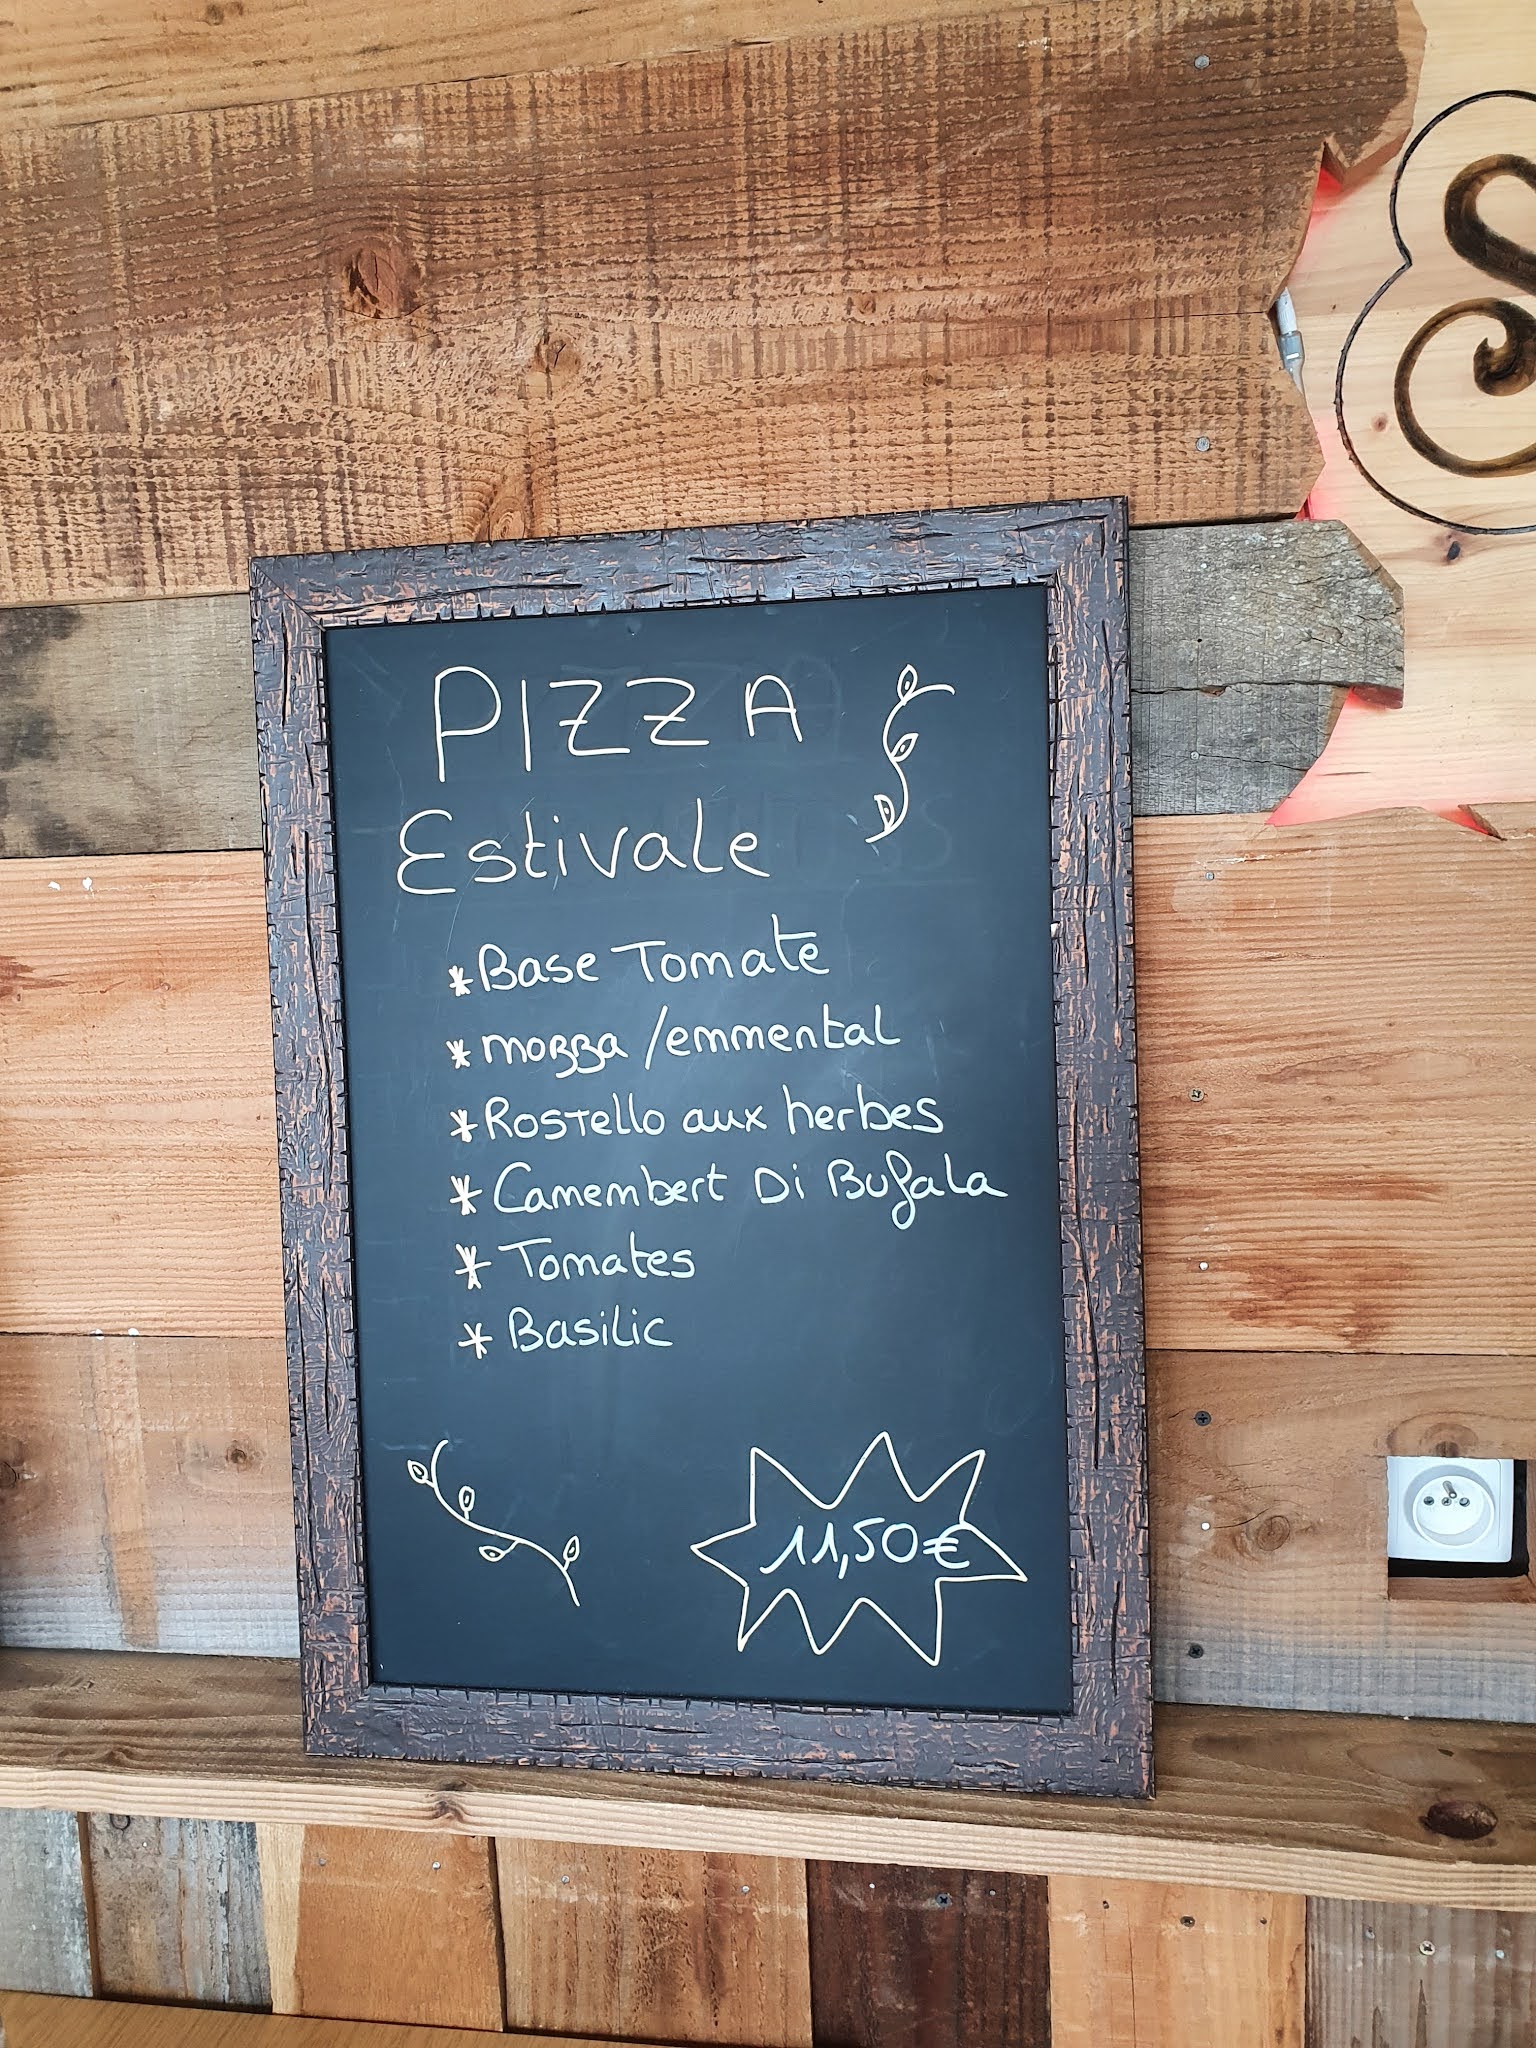 PIZZA
Estivale
* Base Tomate
* mozza / emmental
* Rostello aux herbes
* Camembert Di Bufala
* Tomates
* Basilic
11,50€